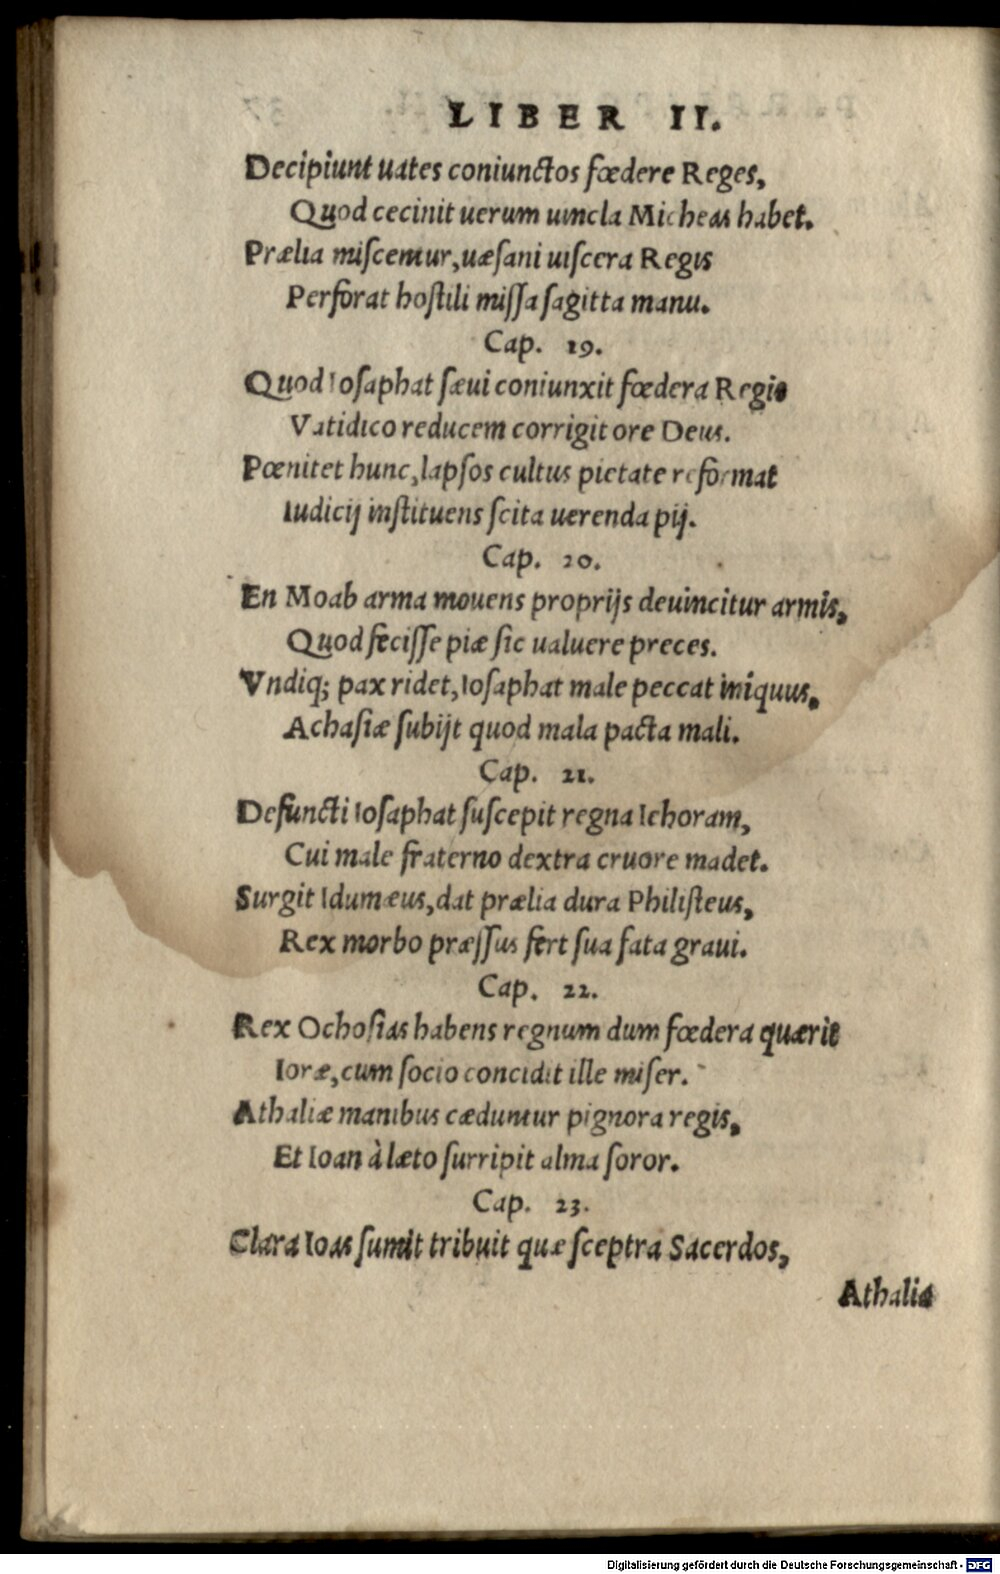 LIBER II.
Decipiunt uates coniunctos fœdere Reges,
Quod cecinit uerum uincla Micheas habet.
Prælia miscentur, uæsani uiscera Regis
Perforat hostili missa sagitta manu.
Cap. 19.
Quod Iosaphat sæui coniunxit fœdera Regis
Vatidico reducem corrigit ore Deus.
Pœnitet hunc, lapsos cultus pietate reformat
Iudicij instituens scita uerenda pij.
Cap. 20.
En Moab arma mouens proprijs deuincitur armis,
Quod fecisse piæ sic ualuere preces.
Vndiq; pax ridet, Iosaphat male peccat iniquus,
Achasiæ subijt quod mala pacta mali.
Cap. 21.
Defuncti Iosaphat suscepit regna Iehoram,
Cui male fraterno dextra cruore madet.
Surgit Idumæus, dat prælia dura Philisteus,
Rex morbo præssus fert sua fata graui.
Cap. 22.
Rex Ochosias habens regnum dum fœdera quærit
Ioræ, cum socio concidit ille miser.
Athaliæ manibus cæduntur pignora regis,
Et Ioan à læto surripit alma soror.
Cap. 23.
Clara Ioas sumit tribuit quæ sceptra Sacerdos,
Athalia
Digitalisierung gefördert durch die Deutsche Forschungsgemeinschaft - DFG